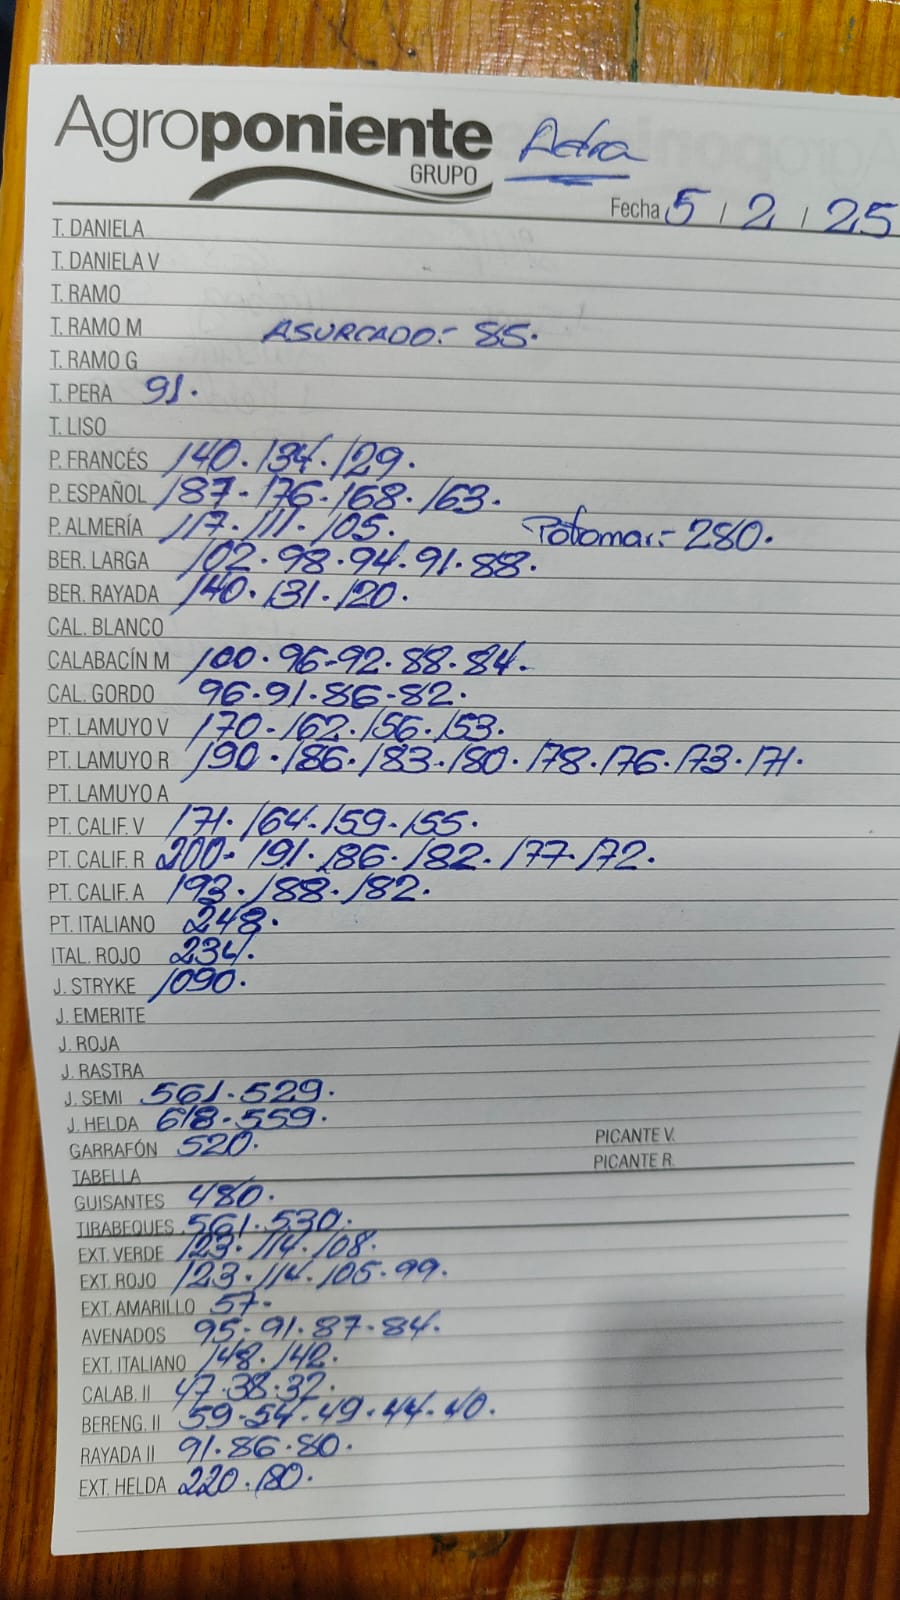 Agroponiente Adra
GRUPO
Fecha 5 / 2 / 25
T. DANIELA
T. DANIELA V
T. RAMO
T. RAMO M ASURCADO:- 85.
T. RAMO G
T. PERA 91.
T. LISO
P. FRANCÉS 140. 134. 129.
P. ESPAÑOL 187- 176- 168. 163.
P. ALMERÍA 117. 111. 105. Potomac:- 280.
BER. LARGA 102. 98. 94. 91. 88.
BER. RAYADA 140. 131. 120.
CAL. BLANCO
CALABACÍN M 100. 96-92. 88. 84.
CAL. GORDO 96. 91. 86-82.
PT. LAMUYO V 170- 162. 156. 153.
PT. LAMUYO R 190. 186. 183. 180. 178. 176. 173. 171.
PT. LAMUYO A
PT. CALIF. V 171. 164- 159- 155.
PT. CALIF. R 200- 191. 186. 182. 177. 172.
PT. CALIF. A 193. 188. 182.
PT. ITALIANO 248.
ITAL. ROJO 234.
J. STRYKE 1090.
J. EMERITE
J. ROJA
J. RASTRA
J. SEMI 561. 529.
J. HELDA 618. 559.
GARRAFÓN 520. PICANTE V.
TABELLA PICANTE R.
GUISANTES 480.
TIRABEQUES 561. 530.
EXT. VERDE 123. 114. 108.
EXT. ROJO 123. 114. 105. 99.
EXT. AMARILLO 57-
AVENADOS 95- 91. 87. 84.
EXT. ITALIANO 148. 142.
CALAB. II 47. 38. 32.
BERENG. II 59. 54. 49. 44. 40.
RAYADA II 91. 86. 80.
EXT. HELDA 220. 180.